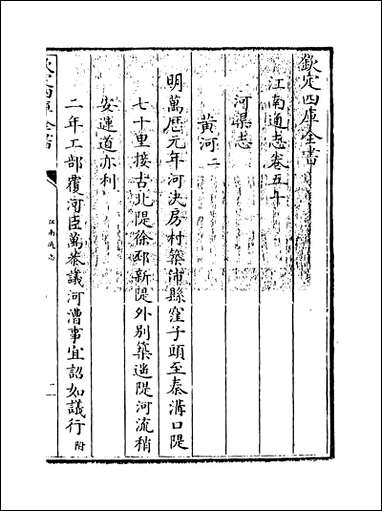 欽定四庫全書
江南通志卷五十
河渠志
黃河二
明萬厯元年河決房村築沛縣窪子頭至秦溝口隄
七十里接古北隄徐邳新隄外别築遥隄河流稍
安運道亦利
二年工部覆河臣萬恭議河漕事宜詔如議行附
欽定四庫全書
江南通志